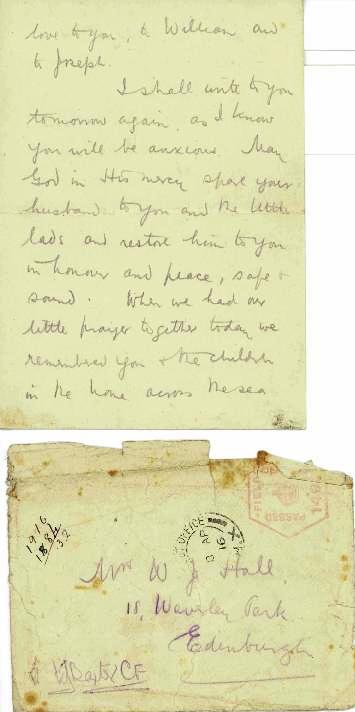 love to you, to William and
to Joseph.
I shall write to you
tomorrow again, as I know
you will be anxious. May
God in His mercy spare your
husband to you and the little
lads and restore him to you
in honour and peace, safe &
sound. When we had our
little prayer together today we
remembered you & the children
in the home across the sea
PASSED
1916
1884
32
OFFICE
AP
16
Mrs W J Hall.
18, Waverley Park.
Edinburgh
CF